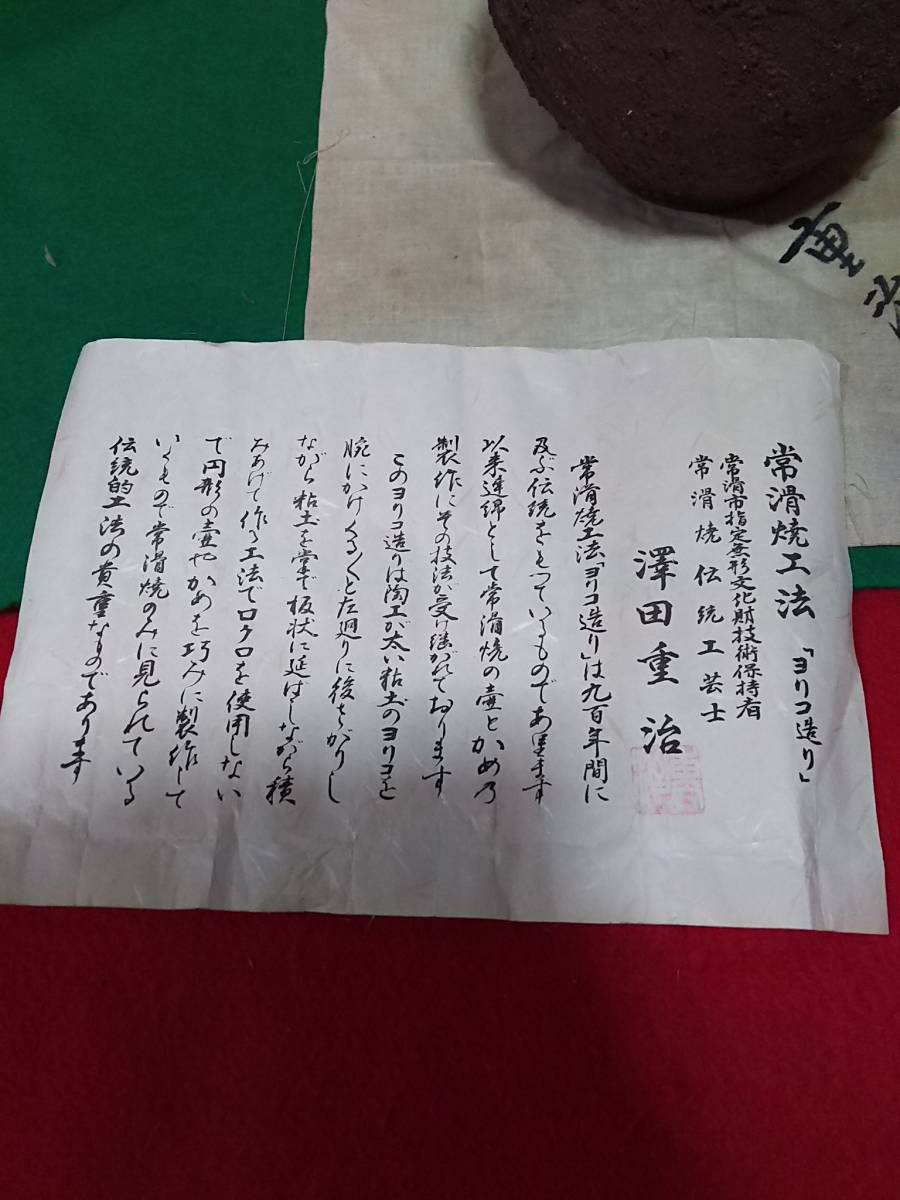 常滑焼工法「ヨリコ造り」
常滑市指定無形文化財技術保持者
常滑焼伝統工芸士
澤田重治
常滑焼工法「ヨリコ造り」は九百年間に
及ぶ伝統をもつているものであります
以来連綿として常滑焼の壷とかめの
製作にその技法が受け継がれております
このヨリコ造りは陶工が太い粘土のヨリコを
腕にかけくる〱と左廻りに後ずさりし
ながら粘土を掌で板状に延ばしながら積
みあげて作る工法でロクロを使用しない
で円形の壷やかめを巧みに製作して
いくもので常滑焼のみに見られている
伝統的工法の貴重なものであります
重